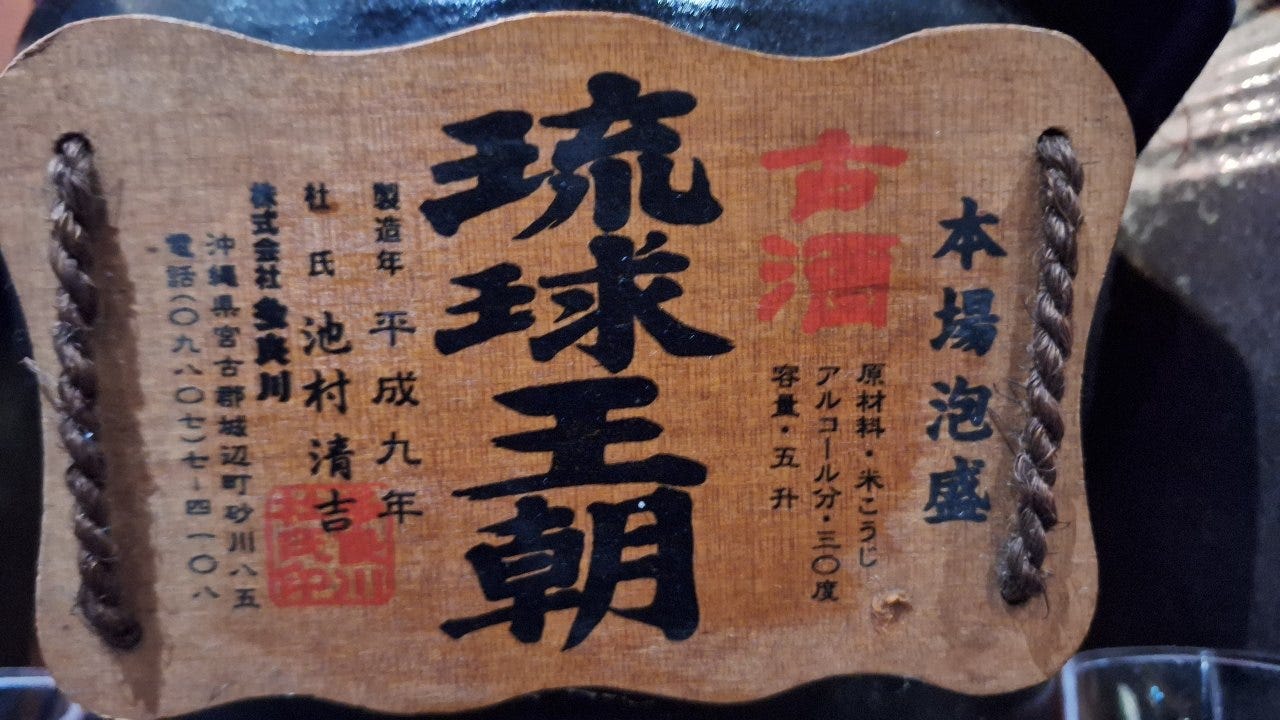 本場泡盛
古酒
原材料・米こうじ
アルコール分・三〇度
容量・五升
琉球王朝
製造年 平成九年
杜氏 池村清吉
株式会社 多良川
沖縄県宮古郡城辺町砂川八五
電話(〇九八〇七)七-四一〇八